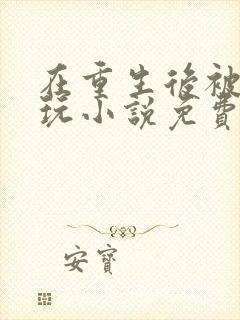 在重生後被
玩小說免費
安寶